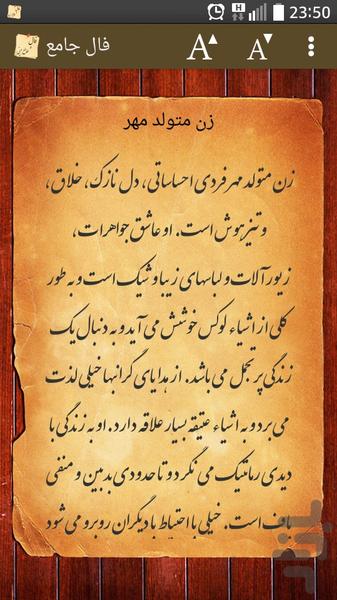 23:50
H
فال جامع
A
A
زن متولد مهر
زن متولد مهر فردی احساساتی، دل نازک، خلاق،
و تیزهوش است. او عاشق جواهرات،
زیور آلات و لباسهای زیبا و شیک است و به طور
کلی از اشیاء لوکس خوشش می آید و به دنبال یک
زندگی پر تجمل می باشد. از هدایای گرانبها خیلی لذت
می برد و به اشیاء عتیقه بسیار علاقه دارد. او به زندگی با
دیدی رمانتیک می نگرد و تا حدودی بدبین و منفی
باف است. خیلی با احتیاط با دیگران روبرو می شود
بازار